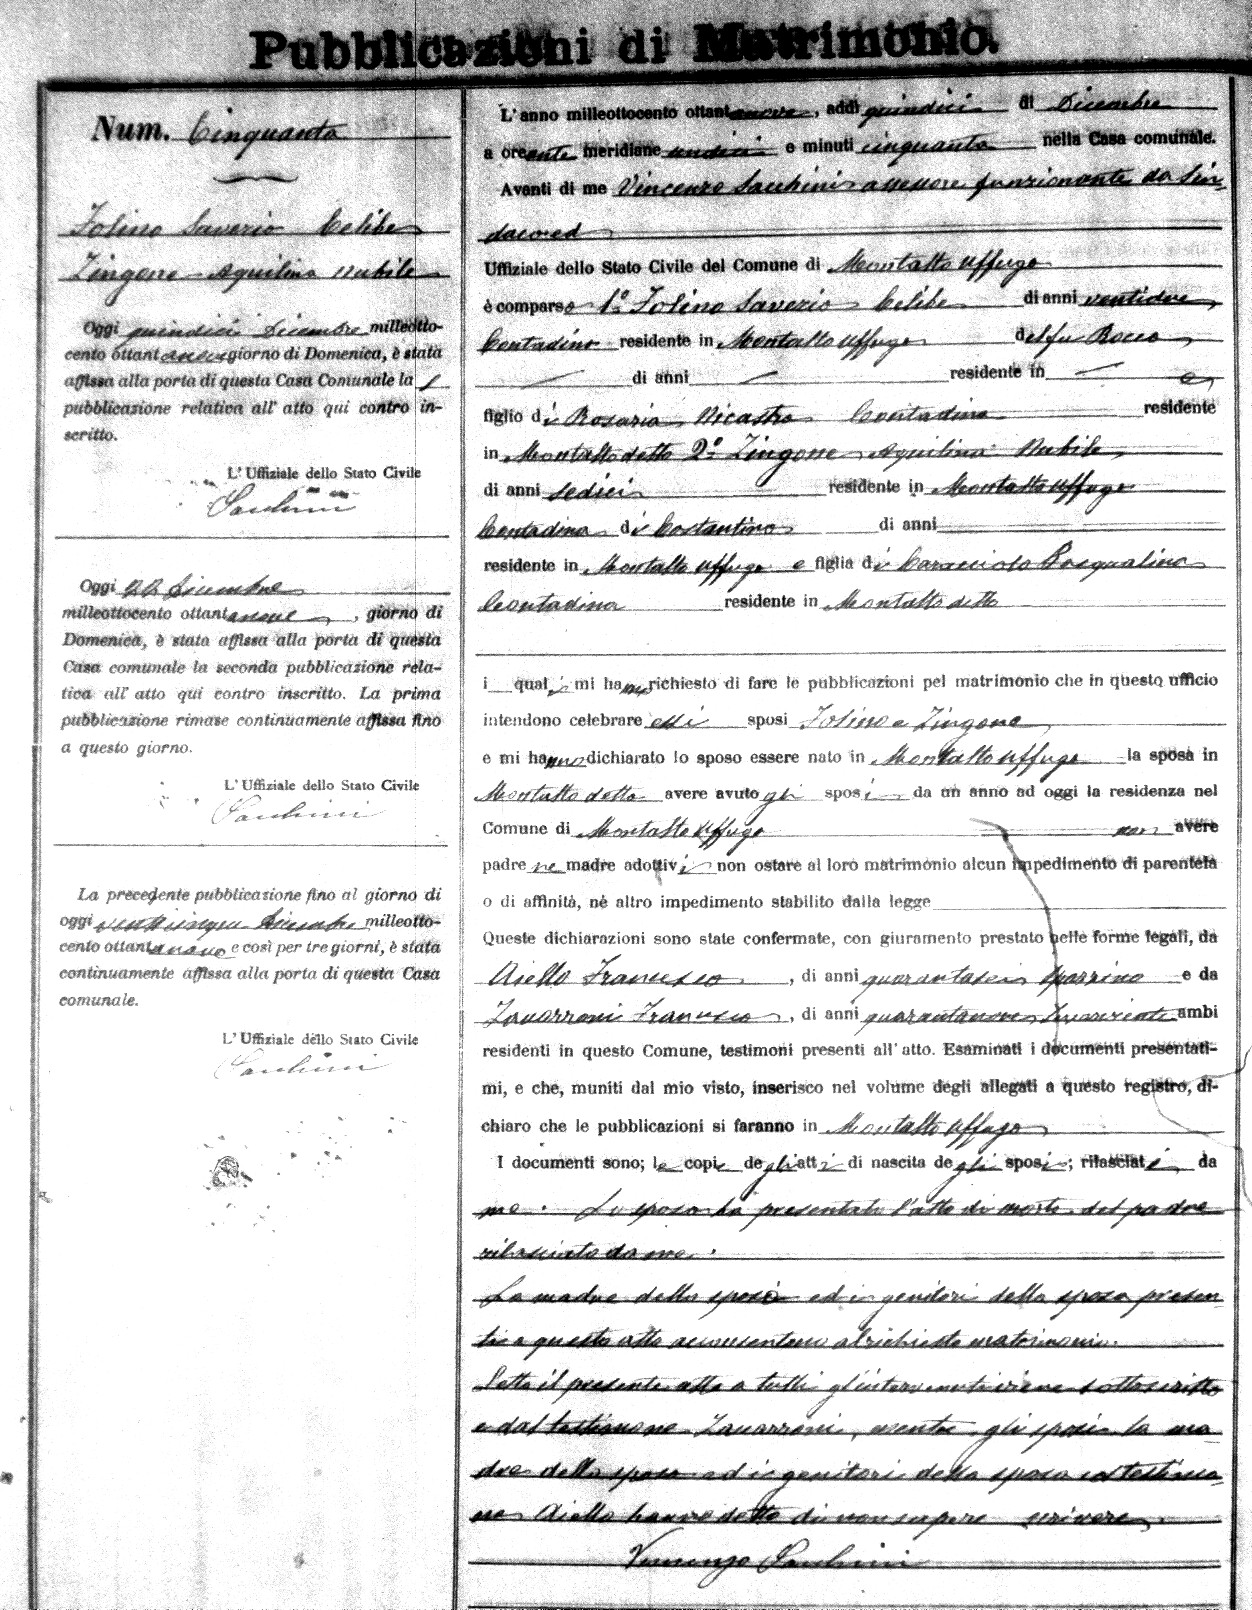 Pubblicazioni di Matrimonio.
Num. Cinquanta
Folino Saverio Celibe
Zingone Aquilina Nubile
Oggi quindici Dicembre milleotto-
cento ottantanove giorno di Domenica, è stata
affissa alla porta di questa Casa Comunale la 1
pubblicazione relativa all' atto qui contro in-
scritto.
L' Uffiziale dello Stato Civile
Sacchini
Oggi 22 Dicembre
milleottocento ottantanove, giorno di
Domenica, è stata affissa alla porta di questa
Casa comunale la seconda pubblicazione rela-
tiva all' atto qui contro inscritto. La prima
pubblicazione rimase continuamente affissa fino
a questo giorno.
L' Uffiziale dello Stato Civile
Sacchini
La precedente pubblicazione fino al giorno di
oggi venticinque Dicembre milleotto-
cento ottantanove e così per tre giorni, è stata
continuamente affissa alla porta di questa Casa
comunale.
L' Uffiziale dello Stato Civile
Sacchini
L' anno milleottocento ottantanove, addì quindici di Dicembre
a ore ante meridiane undici e minuti cinquanta nella Casa comunale.
Avanti di me Vincenzo Sacchini assessore funzionante da Sin-
daco ed
Uffiziale dello Stato Civile del Comune di Montalto Uffugo
è comparso 1° Folino Saverio Celibe di anni ventidue
Contadino residente in Montalto Uffugo del fu Rocco
di anni residente in e
figlio di Rosaria Nicastro Contadina residente
in Montalto detto 2° Zingone Aquilina Nubile
di anni sedici residente in Montalto Uffugo
Contadina di Costantino di anni
residente in Montalto Uffugo e figlia di Caracciolo Pasqualina
Contadina residente in Montalto detto
i quali mi hanno richiesto di fare le pubblicazioni pel matrimonio che in questo ufficio
intendono celebrare essi sposi Folino e Zingone
e mi hanno dichiarato lo sposo essere nato in Montalto Uffugo la sposa in
Montalto detto avere avuto gli sposi da un anno ad oggi la residenza nel
Comune di Montalto Uffugo non avere
padre ne madre adottivi non ostare al loro matrimonio alcun impedimento di parentela
o di affinità, nè altro impedimento stabilito dalla legge
Queste dichiarazioni sono state confermate, con giuramento prestato nelle forme legali, da
Aiello Francesco, di anni quarantasei spazzino e da
Zavarroni Francesco, di anni quarantanove Inserviente ambi
residenti in questo Comune, testimoni presenti all' atto. Esaminati i documenti presentati-
mi, e che, muniti dal mio visto, inserisco nel volume degli allegati a questo registro, di-
chiaro che le pubblicazioni si faranno in Montalto Uffugo
I documenti sono; le copie degli atti di nascita degli sposi; rilasciati da
me. Lo sposo ha presentato l'atto di morte del padre
rilasciato da me.
La madre dello sposo ed i genitori della sposa presen-
ti a questo atto acconsentono al richiesto matrimonio.
Letto il presente atto a tutti gl'intervenuti viene sottoscritto
e dal testimone Zavarroni, mentre gli sposi la ma-
dre dello sposo ed i genitori della sposa ed testimo-
ne Aiello hanno detto di non sapere scrivere.
Vincenzo Sacchini